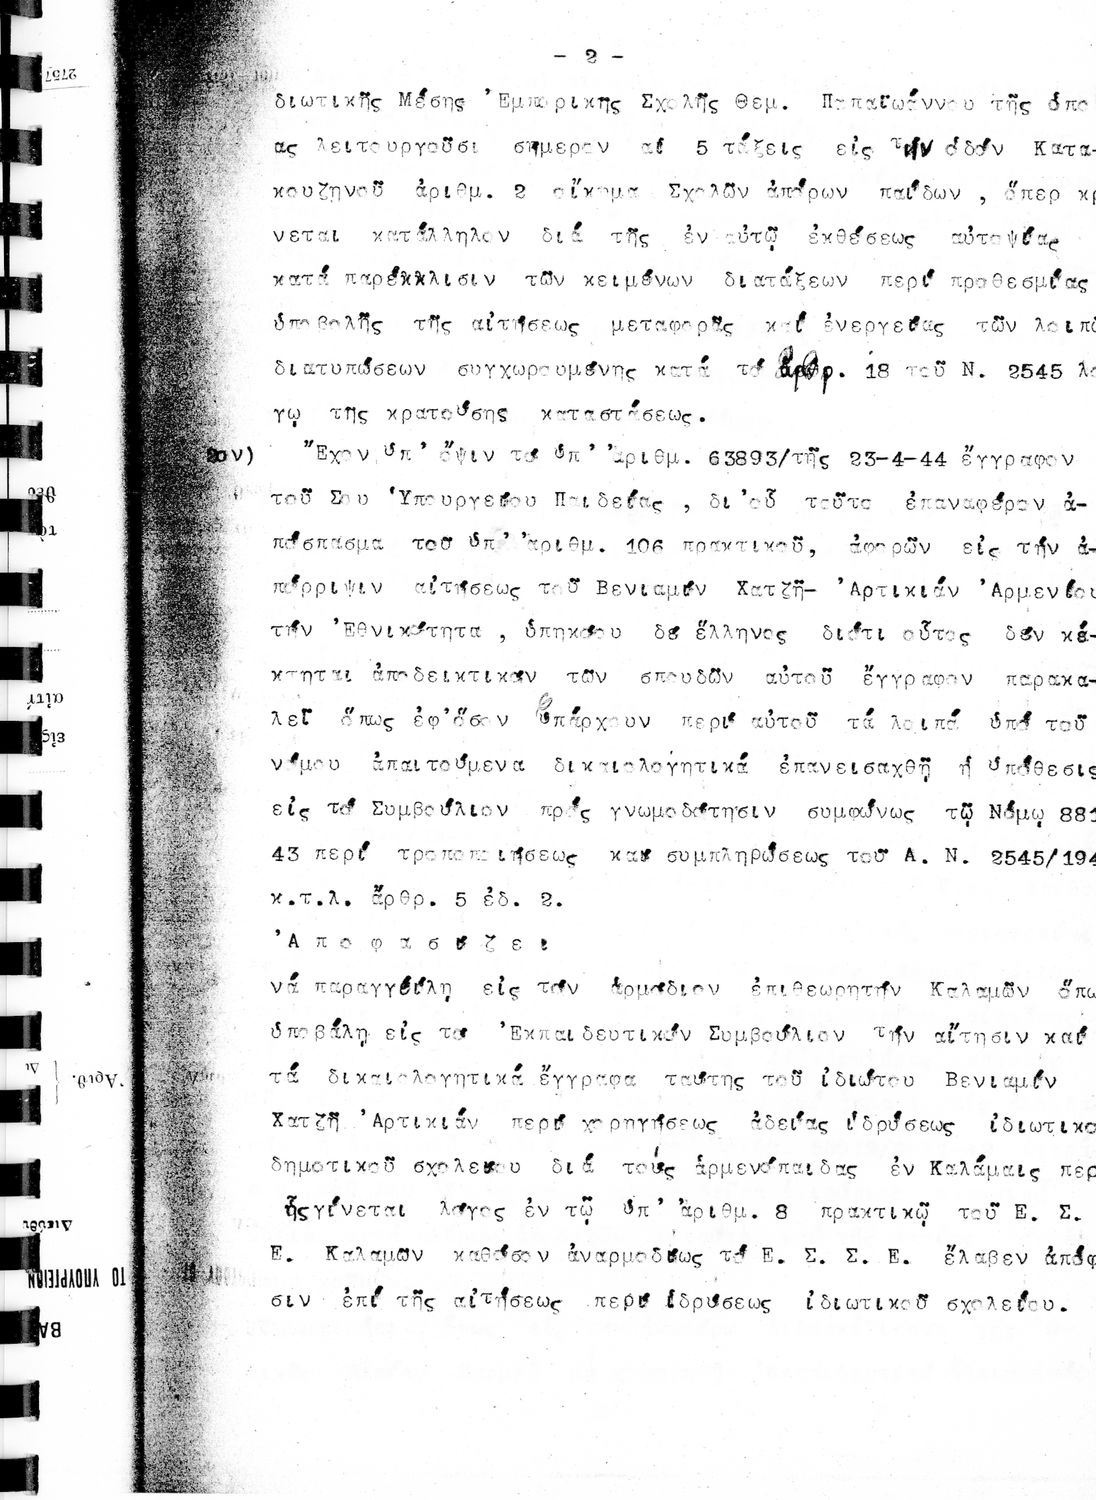 - 2 -
διωτικῆς Μέσης Ἐμπορικῆς Σχολῆς Θεμ. Παπαϊωάννου τῆς ὁπο
ας λειτουργοῦσι σήμερον αἱ 5 τάξεις εἰς τήν ὁδόν Κατα-
κουζηνοῦ ἀριθμ. 2 οἴκημα Σχολῶν ἀπόρων παίδων , ὅπερ κρ
νεται κατάλληλον διά τῆς ἐν αὐτῷ ἐκθέσεως αὐτοψίας
κατά παρέκκλισιν τῶν κειμένων διατάξεων περί προθεσμίας
ὑποβολῆς τῆς αἰτήσεως μεταφορᾶς καί ἐνεργείας τῶν λοιπῶ
διατυπώσεων συγχωρουμένης κατά τό ἄρθρ. 18 τοῦ Ν. 2545 λό
γῳ τῆς κρατούσης καταστάσεως.
2ον) Ἔχον ὑπ' ὄψιν τό ὑπ' ἀριθμ. 63893/τῆς 23-4-44 ἔγγραφον
τοῦ Σου Ὑπουργείου Παιδείας , δι' οὗ τοῦτο ἐπαναφέρον ἀ-
πόσπασμα τοῦ ὑπ' ἀριθμ. 106 πρακτικοῦ, ἀφορῶν εἰς τήν ἀ-
πόρριψιν αἰτήσεως τοῦ Βενιαμίν Χατζῆ- Ἀρτικιάν Ἀρμενίου
τήν Ἐθνικότητα , ὑπηκόου δέ ἕλληνος διότι οὗτος δέν κέ-
κτηται ἀποδεικτικόν τῶν σπουδῶν αὐτοῦ ἔγγραφον παρακα-
λεῖ ὅπως ἐφ' ὅσον ὑπάρχουν περί αὐτοῦ τά λοιπά ὑπό τοῦ
νόμου ἀπαιτούμενα δικαιολογητικά ἐπανεισαχθῇ ἡ ὑπόθεσις
εἰς τό Συμβούλιον πρός γνωμοδότησιν συμφώνως τῷ Νόμῳ 881
43 περί τροποποιήσεως καί συμπληρώσεως τοῦ Α. Ν. 2545/194
κ.τ.λ. ἄρθρ. 5 ἐδ. 2.
Ἀ π ο φ α σ ί ζ ε ι
νά παραγγείλῃ εἰς τόν ἁρμόδιον ἐπιθεωρητήν Καλαμῶν ὅπω
ὑποβάλῃ εἰς τό Ἐκπαιδευτικόν Συμβούλιον τήν αἴτησιν καί
τά δικαιολογητικά ἔγγραφα ταύτης τοῦ ἰδιώτου Βενιαμίν
Χατζῆ Ἀρτικιάν περί χορηγήσεως ἀδείας ἱδρύσεως ἰδιωτικο
δημοτικοῦ σχολείου διά τούς ἀρμενόπαιδας ἐν Καλάμαις περ
ἧς γίνεται λόγος ἐν τῷ ὑπ' ἀριθμ. 8 πρακτικῷ τοῦ Ε. Σ.
Ε. Καλαμῶν καθόσον ἀναρμοδίως τό Ε. Σ. Σ. Ε. ἔλαβεν ἀπόφ
σιν ἐπί τῆς αἰτήσεως περί ἱδρύσεως ἰδιωτικοῦ σχολείου.
2757
αἰτή
εἰς
Ἀριθ.
Διεύθυ
ΤΟ ΥΠΟΥΡΓΕΙΟΝ
ΒΑ